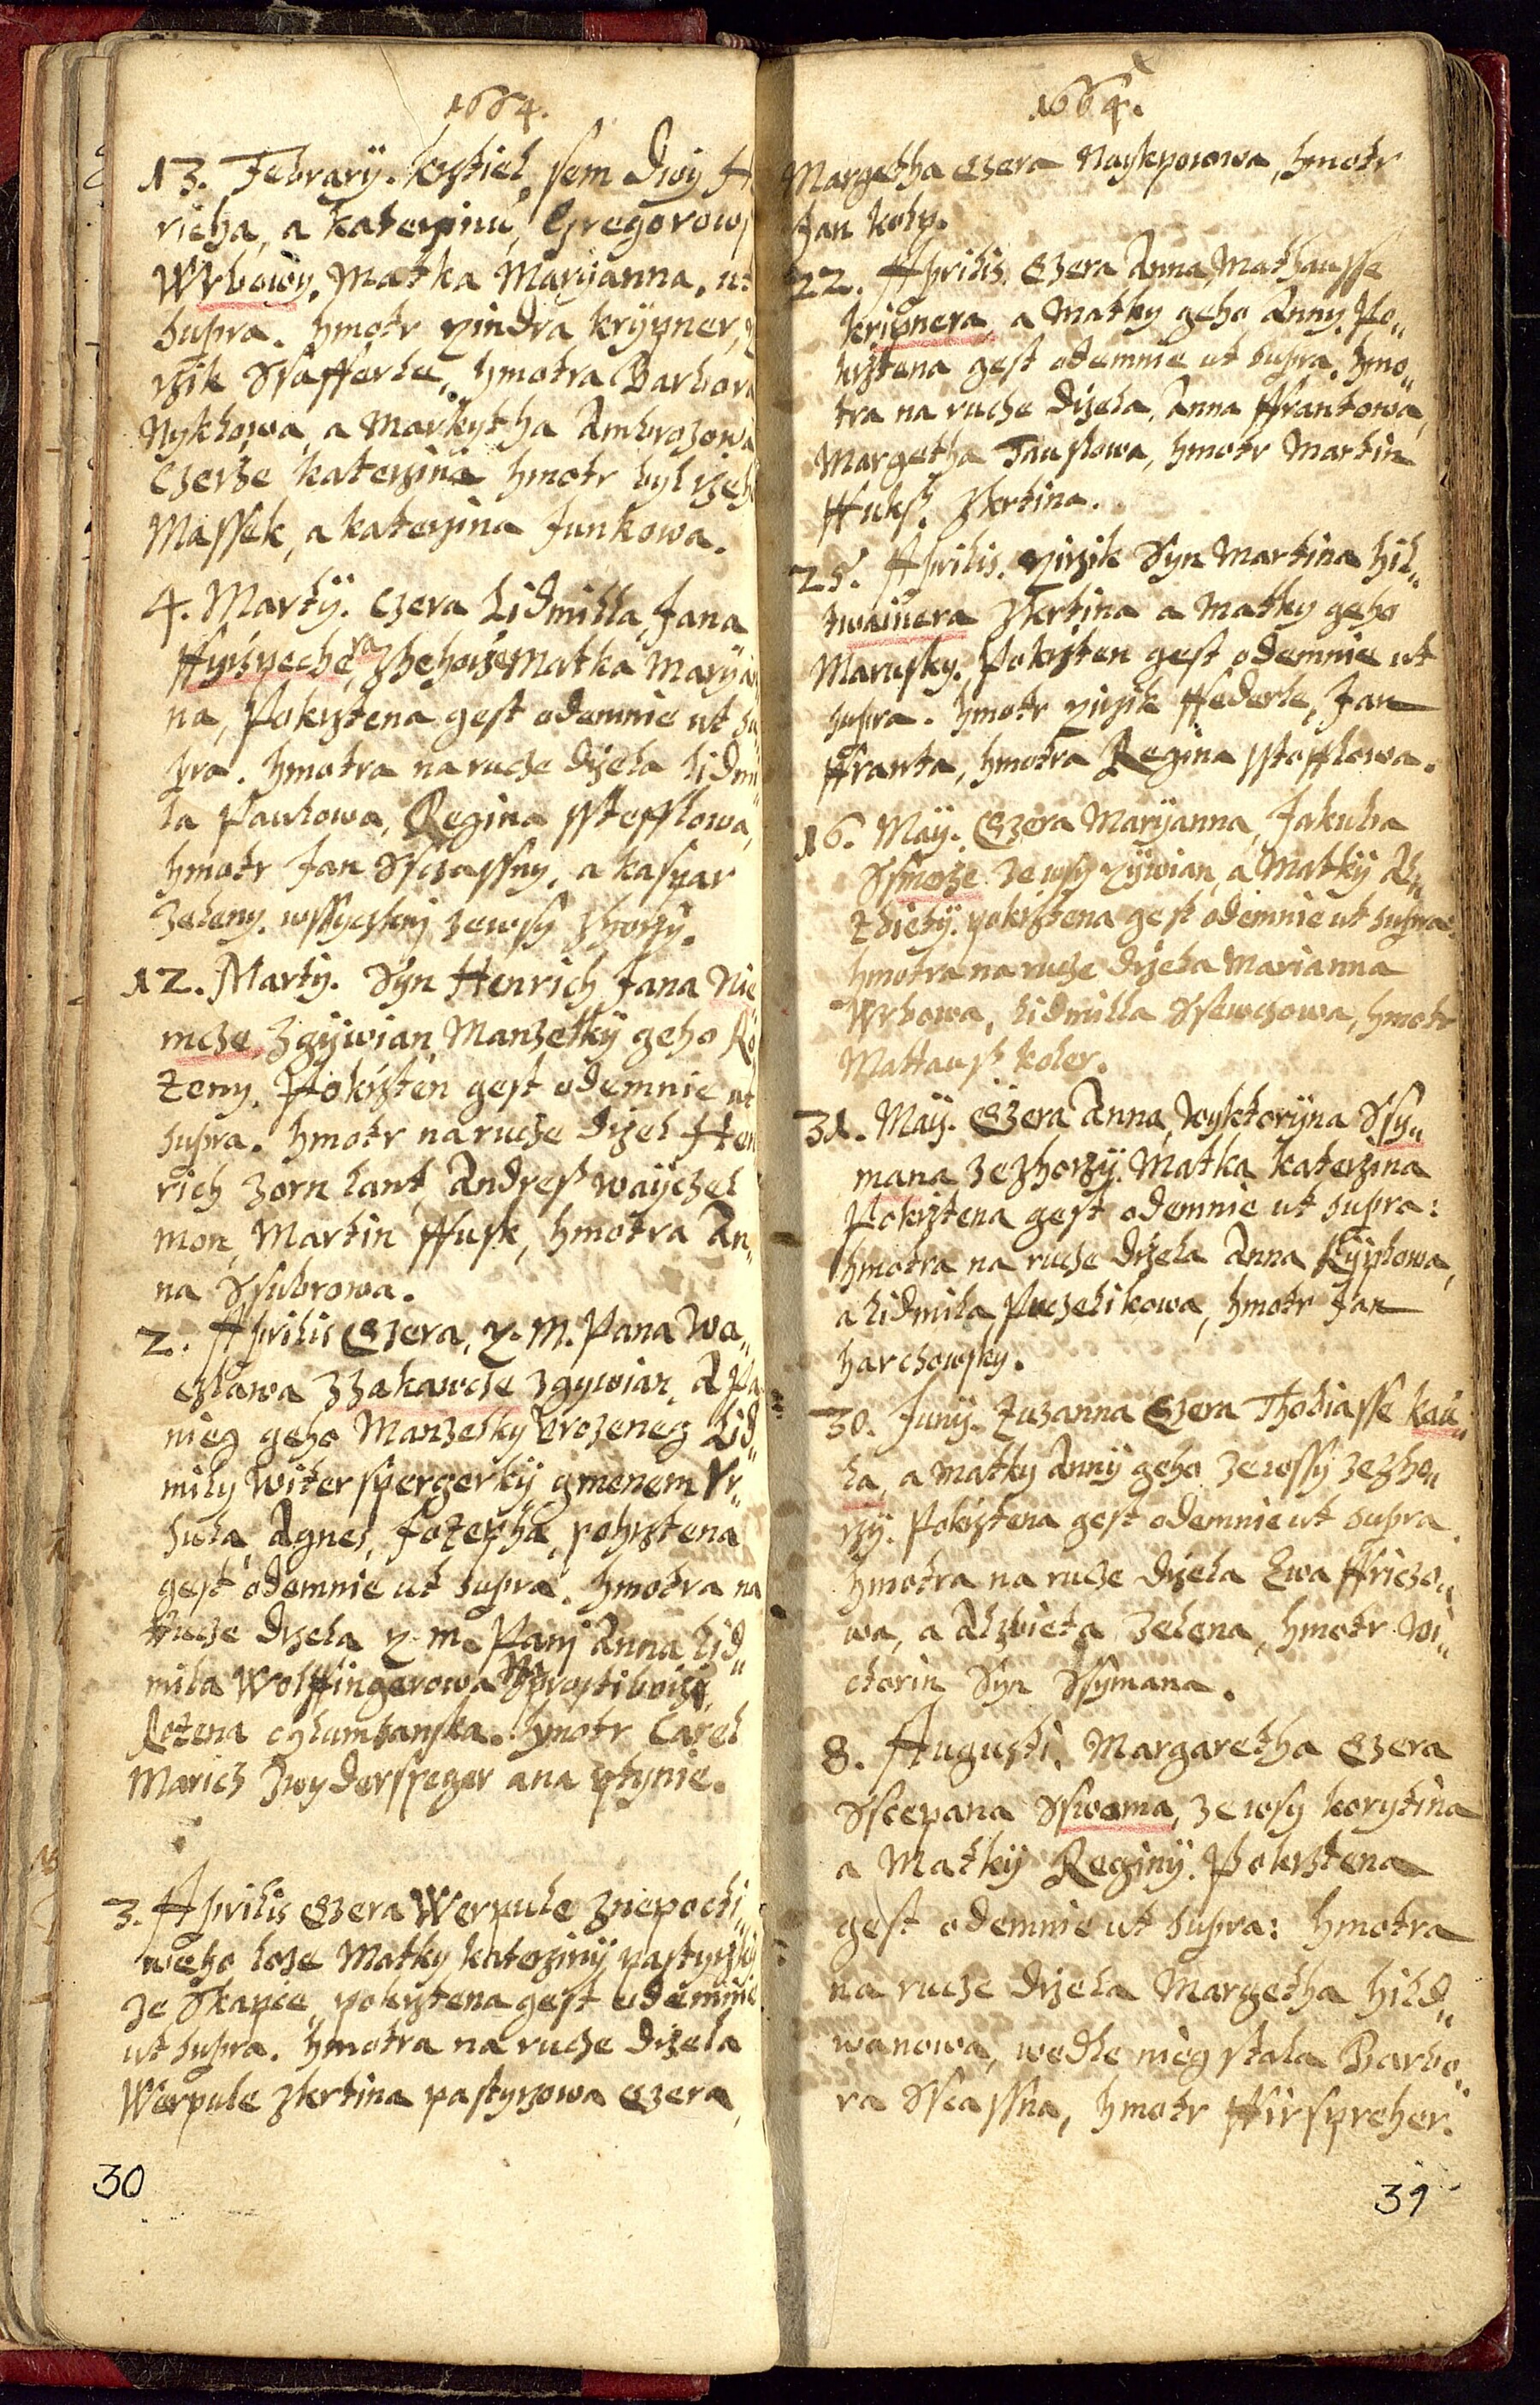 1664.
13. Februarÿ. krztiel sem Dwÿ
richa, a Katerzinu, Gregorowÿ
Wrbowy. Matka Maryanna. ut
supra. hmotr yindra kryyner,
rzik Sstafferle, hmotra Barbora
Nyklowa, a Markytha Ambrozowa
Czerze Katerzina hmotr byl
Massek, a Katerzina Junkowa.
4. Martÿ. Czera Lidmilla, Jana
Matka Maryan
na, Pokrztena gest odemnie ut su
pra. hmotra na rucze drzela Lidmi
la Paulowa, Regina sstefflowa,
hmotr Jan Ssczassny, a Kaspar
Zeleny. wssyczknj zewsy zhorzy.
12. Martÿ. Syn Henrich Jana Nie
mcze, zgÿwian Manzelkÿ geho Ro
zeny. Pokrzten gest odemnie ut
supra. hmotr na rucze drzel Hen
rich Zorn lant, Andress Waÿczel
mon, Martin ffusk, hmotra An„
na Ssubrowa.
2. Aprilis Czera, y. M. Pana Wa„
czlawa zzakawcze zgywian, A Pa
nieg geho Manzelky Vrozeneg Lid„
mily Witerspergerkÿ gmenem Vr„
sula, Agnes, Jozepha, pokrztena
gest odemnie ut supra. hmotra na
rucze drzela y. m. Panj Anna Lid„
mila Wolffingerowa
Rozena chlumzanska. hmotr Carel
Maricz Zwydersperger ana ptynie.
3. Aprilis Czera Werpule zniepocti„
weho loze Matky Katerzinÿ pastyrzky
ze Skapcie, pokrztena gest odemnie
ut supra. hmotra na rucze drzela
Werpule zkrtina pastyrzowa Czera,
30
1664.
Margetha Czera Naykpowowa, hmotr
Jan Koly.
22. Aprilis. Czera Anna, Mathausse
kripnera, a Matky geho Anny. Po„
krztena gest odemnie ut supra. hmo„
tra na rucze drzela, Anna ffrantowa,
Margetha Tauslowa, hmotr Martin
ffuks. zkrtina.
25. Aprilis. yirzik Syn Martina hil„
twainera zkrtina a Matky geho
Marusky. Pokrzten gest odemnie ut
supra. hmotr yirzik ffederle, Jan
ffranta, hmotra Regina sstofflowa.
16. Maÿ. Czera Marÿanna, Jakuba
Ssmerze zewsy zÿwian, a Matkÿ Al„
zbietÿ. pokrztena gest odemnie ut supra:
hmotra na rucze drzela Marianna
Wrbowa, Lidmilla Ssewczowa, hmotr
Mattauss koler.
31. Maÿ. Czera Anna, Wyktorÿna Ssy„
mana ze zhorzÿ. Matka Katerzina
Pokrztena gest odemnie ut supra:
hmotra na rucze drzela Anna Kÿplowa,
a Lidmila Puczelikowa, hmotr Jan
harchowsky.
30. Junÿ. Zuzanna Czera Thobiasse kau„
la, a Matky Annÿ geho zewssÿ ze zho„
rzÿ. Pokrztena gest odemnie ut supra.
hmotra na rucze drzela Ewa ffriczo„
wa, a Alzbieta Zelena, hmotr Wi„
ctorin Syn Ssymana.
8. Augusti. Margaretha Czera
Ssczepana Sswema, ze wsy korytina
a Matkÿ Reginÿ. Pokrztena
gest odemnie ut supra: hmotra
na rucze drzela Margetha hild„
wanowa, wedle nieg stala Barbo„
ra Ssczassna, hmotr ffirspreher.
31